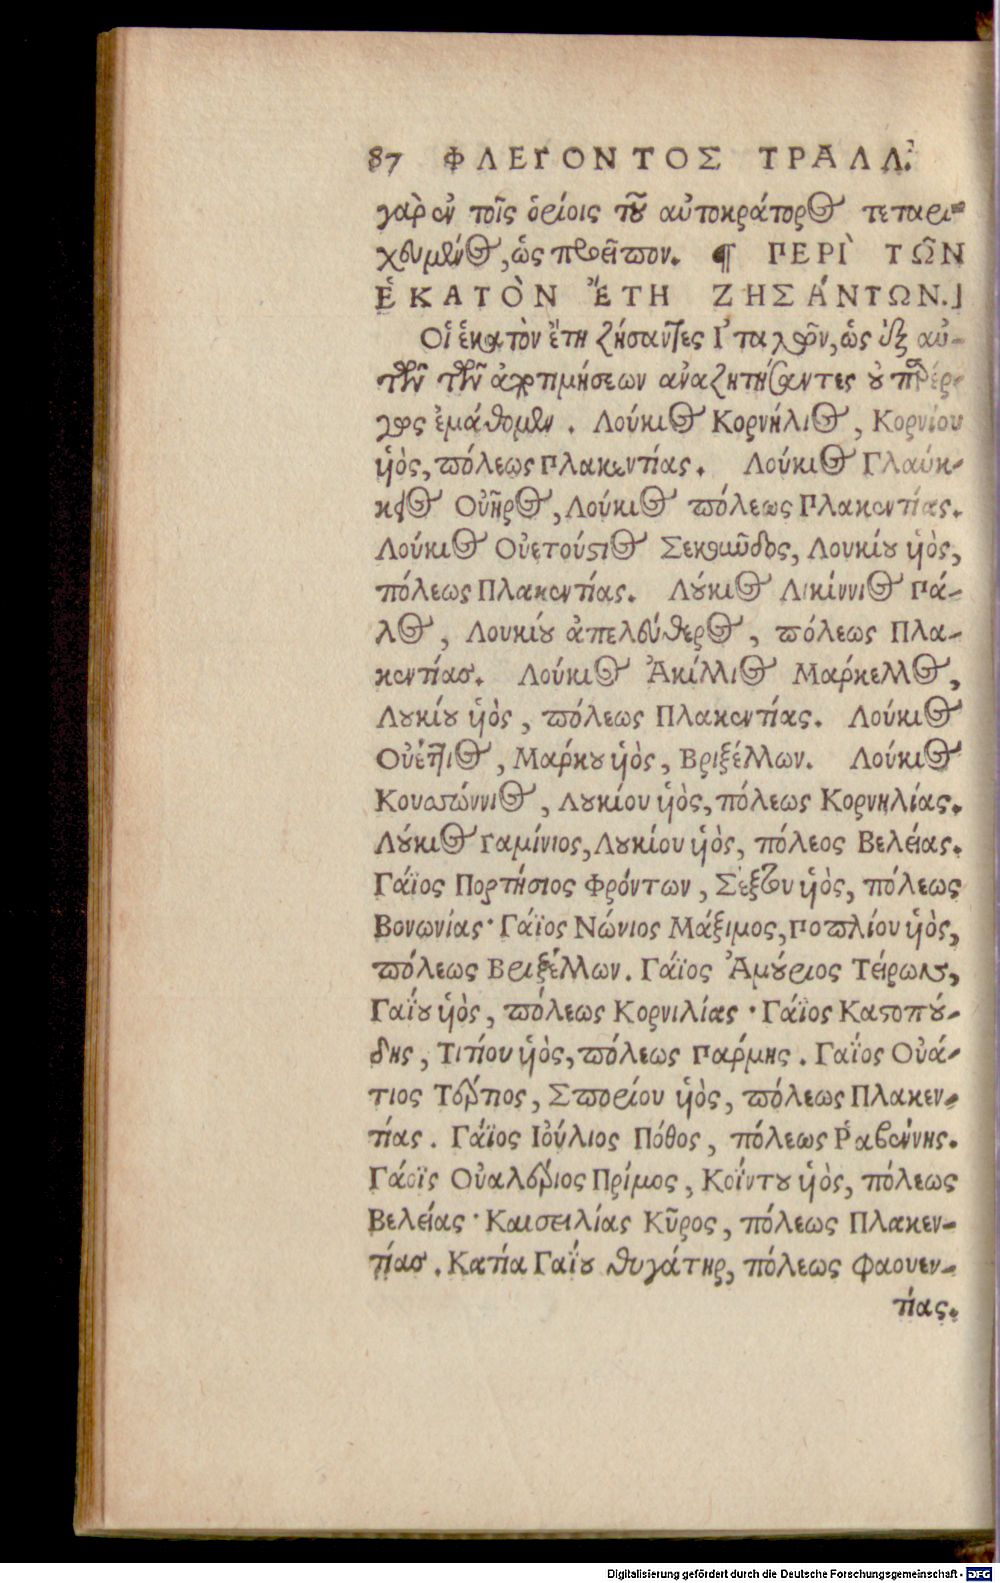 87 ΦΛΕΓΟΝΤΟΣ ΤΡΑΛΛ.
γὰρ ἐν τοῖς ὁρίοις τοῦ αὐτοκράτορος τεταρι-
χευμένος, ὡς προεῖπον. ¶ ΠΕΡῚ ΤΩ͂Ν
ἙΚΑΤῸΝ ἜΤΗ ΖΗΣΆΝΤΩΝ.]
Οἱ ἑκατὸν ἔτη ζήσαντες Ἰταλῶν, ὡς ἐξ αὐ-
τῶν τῶν ἀποτιμήσεων ἀναζητήσαντες οὐ παρέρ-
γως ἐμάθομεν. Λούκιος Κορνήλιος, Κορνίου
ἱὸς, πόλεως Πλακεντίας. Λούκιος Γλαύκ-
κιος Οὐῆρος, Λούκιος πόλεως Πλακεντίας.
Λούκιος Οὐετούστιος Σεκοῦνδος, Λουκίου ἱὸς,
πόλεως Πλακεντίας. Λούκιος Λικίννιος Πά-
λος, Λουκίου ἀπελεύθερος, πόλεως Πλα-
κεντίας. Λούκιος Ἀκίλλιος Μαρ́κελλος,
Λουκίου ἱὸς, πόλεως Πλακεντίας. Λούκιος
Οὐέττιος, Μαρ́κου ἱὸς, Βριξέλλων. Λούκιος
Κουσπώννιος, Λουκίου ἱὸς, πόλεως Κορνηλίας.
Λούκιος Γαμίνιος, Λουκίου ἱὸς, πόλεος Βελείας.
Γάϊος Πορτήσιος Φρόντων, Σέξτου ἱὸς, πόλεως
Βονωνίας· Γάϊος Νώνιος Μάξιμος, ποπλίου ἱὸς,
πόλεως Βριξέλλων. Γάϊος Ἀμούριος Τείρων,
Γαΐου ἱὸς, πόλεως Κορνιλίας· Γάϊος Καστοπού-
δης, Τιτίου ἱὸς, πόλεως Παρ́μης. Γαΐος Οὐά-
τιος Τέρτιος, Σπορίου ἱὸς, πόλεως Πλακεν-
τίας. Γάϊος Ἰούλιος Πόθος, πόλεως Ῥαβέννης.
Γάοϊς Οὐαλέριος Πρίμος, Κοΐντου ἱὸς, πόλεως
Βελείας· Καισειλίας Κῦρος, πόλεως Πλακεν-
τίας. Κατία Γαΐου θυγάτηρ, πόλεως Φαουεν-
τίας.
Digitalisierung gefördert durch die Deutsche Forschungsgemeinschaft - DFG